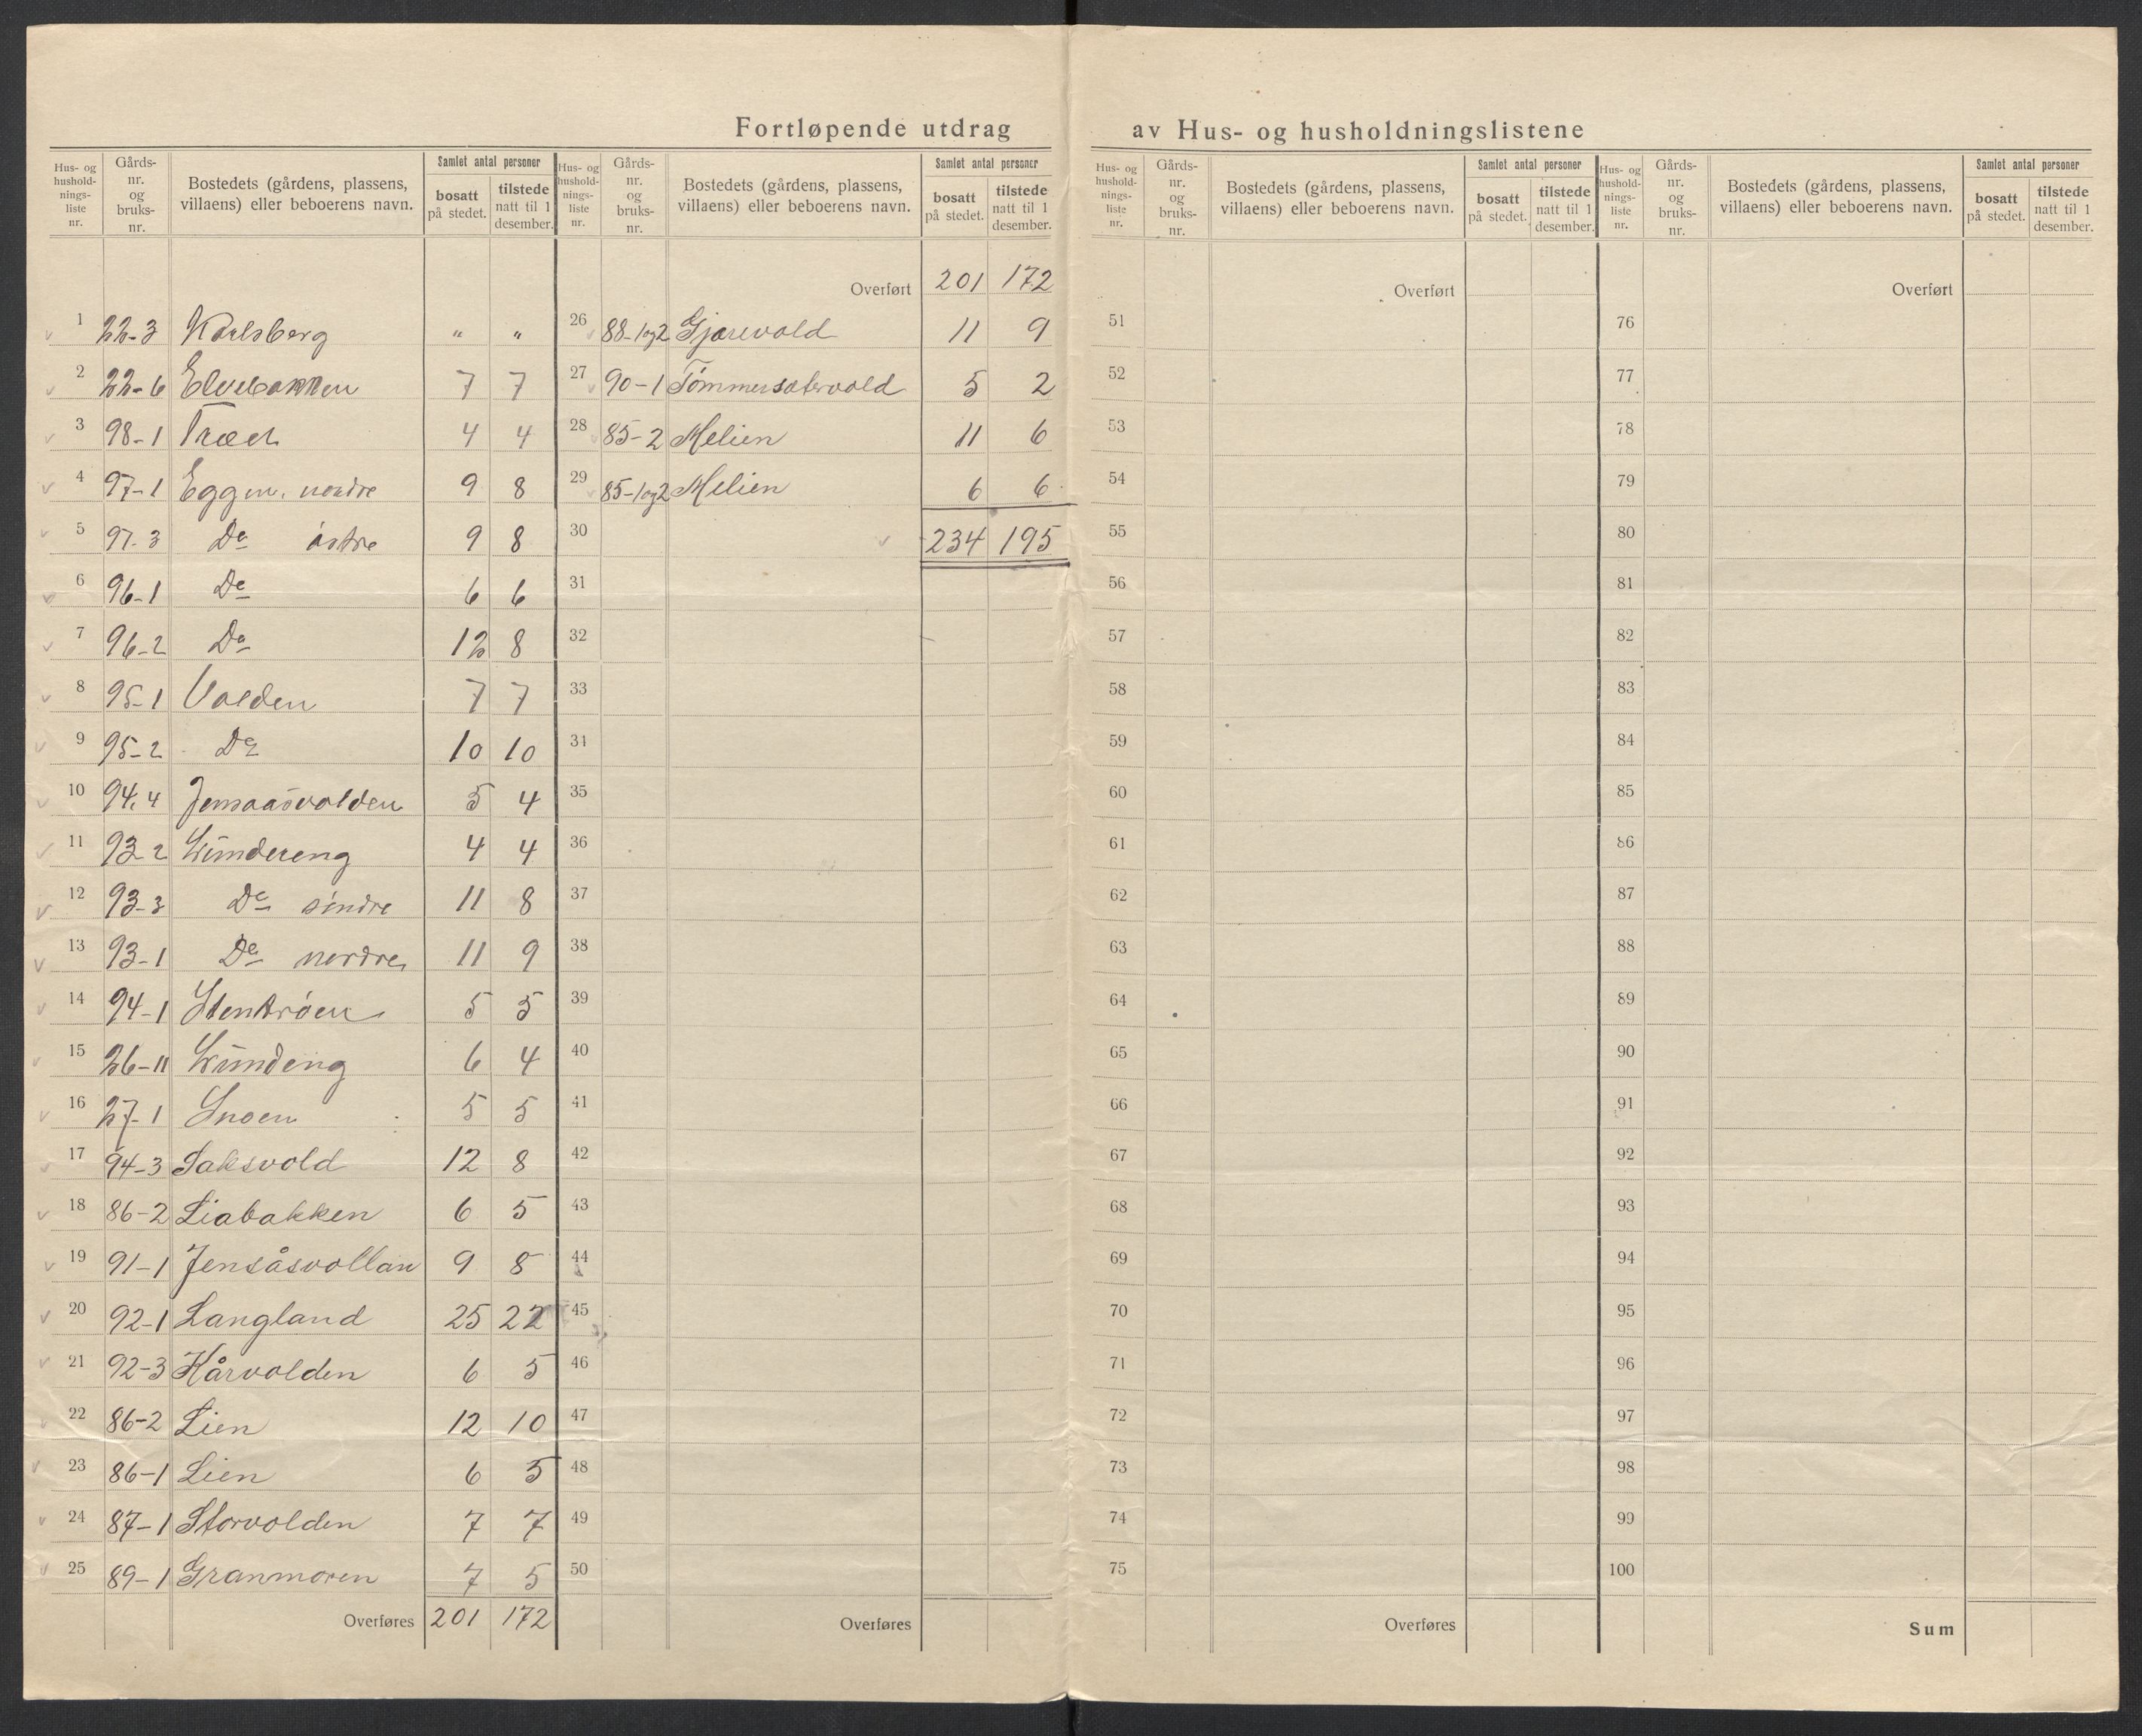 Fortløpende utdrag av Hus- og husholdningslistene
Hus- og hushold-nings-liste nr. | Gårds-nr. og bruks-nr. | Bostedets (gårdens, plassens, villaens) eller beboerens navn. | Samlet antal personer | bosatt på stedet. | tilstede natt til 1 desember.
1 22-3 Karlsberg " "
2 22-6 Elvebakken 7 7
3 98-1 Træet 4 4
4 97-1 Eggen, nordre 9 8
5 97.3 Do østre 9 8
6 96-1 Do 6 6
7 96-2 Do 12 8
8 95-1 Volden 7 7
9 95-2 Do 10 10
10 94.4 Jensaasvolden 5 4
11 93-2 Lundereng 4 4
12 93-3 Do söndre 11 8
13 93-1 Do nordre 11 9
14 94-1 Stentrøen 5 5
15 26-11 Lundeng 6 4
16 27-1 Snoen 5 5
17 94-3 Saksvold 12 8
18 86-2 Liabakken 6 5
19 91-1 Jensåsvollan 9 8
20 92-1 Langland 25 22
21 92-3 Kårvolden 6 5
22 86-2 Lien 12 10
23 86-1 Lien 6 5
24 87-1 Storvolden 7 7
25 89-1 Granmoren 7 5
Overføres 201 172
Hus- og hushold-nings-liste nr. | Gårds-nr. og bruks-nr. | Bostedets (gårdens, plassens, villaens) eller beboerens navn. | Samlet antal personer | bosatt på stedet. | tilstede natt til 1 desember.
Overført 201 172
26 88-1og2 Gjærevold 11 9
27 90-1 Tömmersætervold 5 2
28 85-2 Melien 11 6
29 85-1og2 Melien 6 6
30 234 195
31
32
33
34
35
36
37
38
39
40
41
42
43
44
45
46
47
48
49
50
Overføres
Hus- og hushold-nings-liste nr. | Gårds-nr. og bruks-nr. | Bostedets (gårdens, plassens, villaens) eller beboerens navn. | Samlet antal personer | bosatt på stedet. | tilstede natt til 1 desember.
Overført
51
52
53
54
55
56
57
58
59
60
61
62
63
64
65
66
67
68
69
70
71
72
73
74
75
Overføres
Hus- og hushold-nings-liste nr. | Gårds-nr. og bruks-nr. | Bostedets (gårdens, plassens, villaens) eller beboerens navn. | Samlet antal personer | bosatt på stedet. | tilstede natt til 1 desember.
Overført
76
77
78
79
80
81
82
83
84
85
86
87
88
89
90
91
92
93
94
95
96
97
98
99
100
Sum